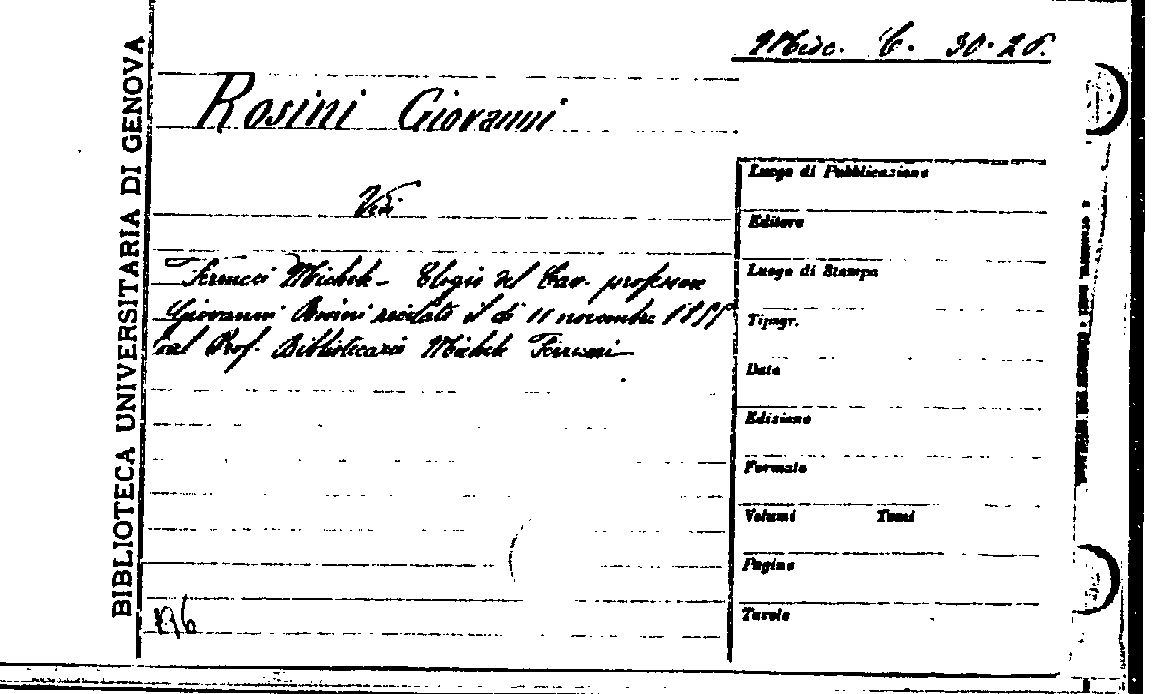 BIBLIOTECA UNIVERSITARIA DI GENOVA
Misc. C. 30.26.
Rosini Giovanni
Vedi
Ferrucci Michele - Elogio del Cav. professore
Giovanni Rosini recitato il dì 11 novembre
dal Prof. Bibliotecario Michele Ferrucci
Luogo di Pubblicazione
Editore
Luogo di Stampa
Tipogr.
Data
Edizione
Formato
Volumi Tomi
Pagine
Tavole